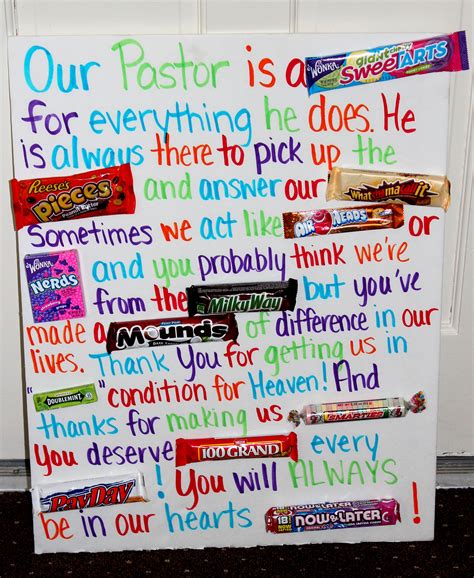 Our Pastor is a WONKA giant chewy SweeTARTS
for everything he does. He
is always there to pick up the
REESE'S pieces and answer our Whatchamacallit
Sometimes we act like AIRHEADS or
WONKA NERDS and you probably think we're
from the MilkyWay but you've
made a MOUNDS of difference in our
lives. Thank You for getting us in
" DOUBLEMINT " condition for Heaven! And
thanks for making us SMARTIES
You deserve 100 GRAND every
PayDay ! You will ALWAYS
be in our hearts 18 NOW and LATER !